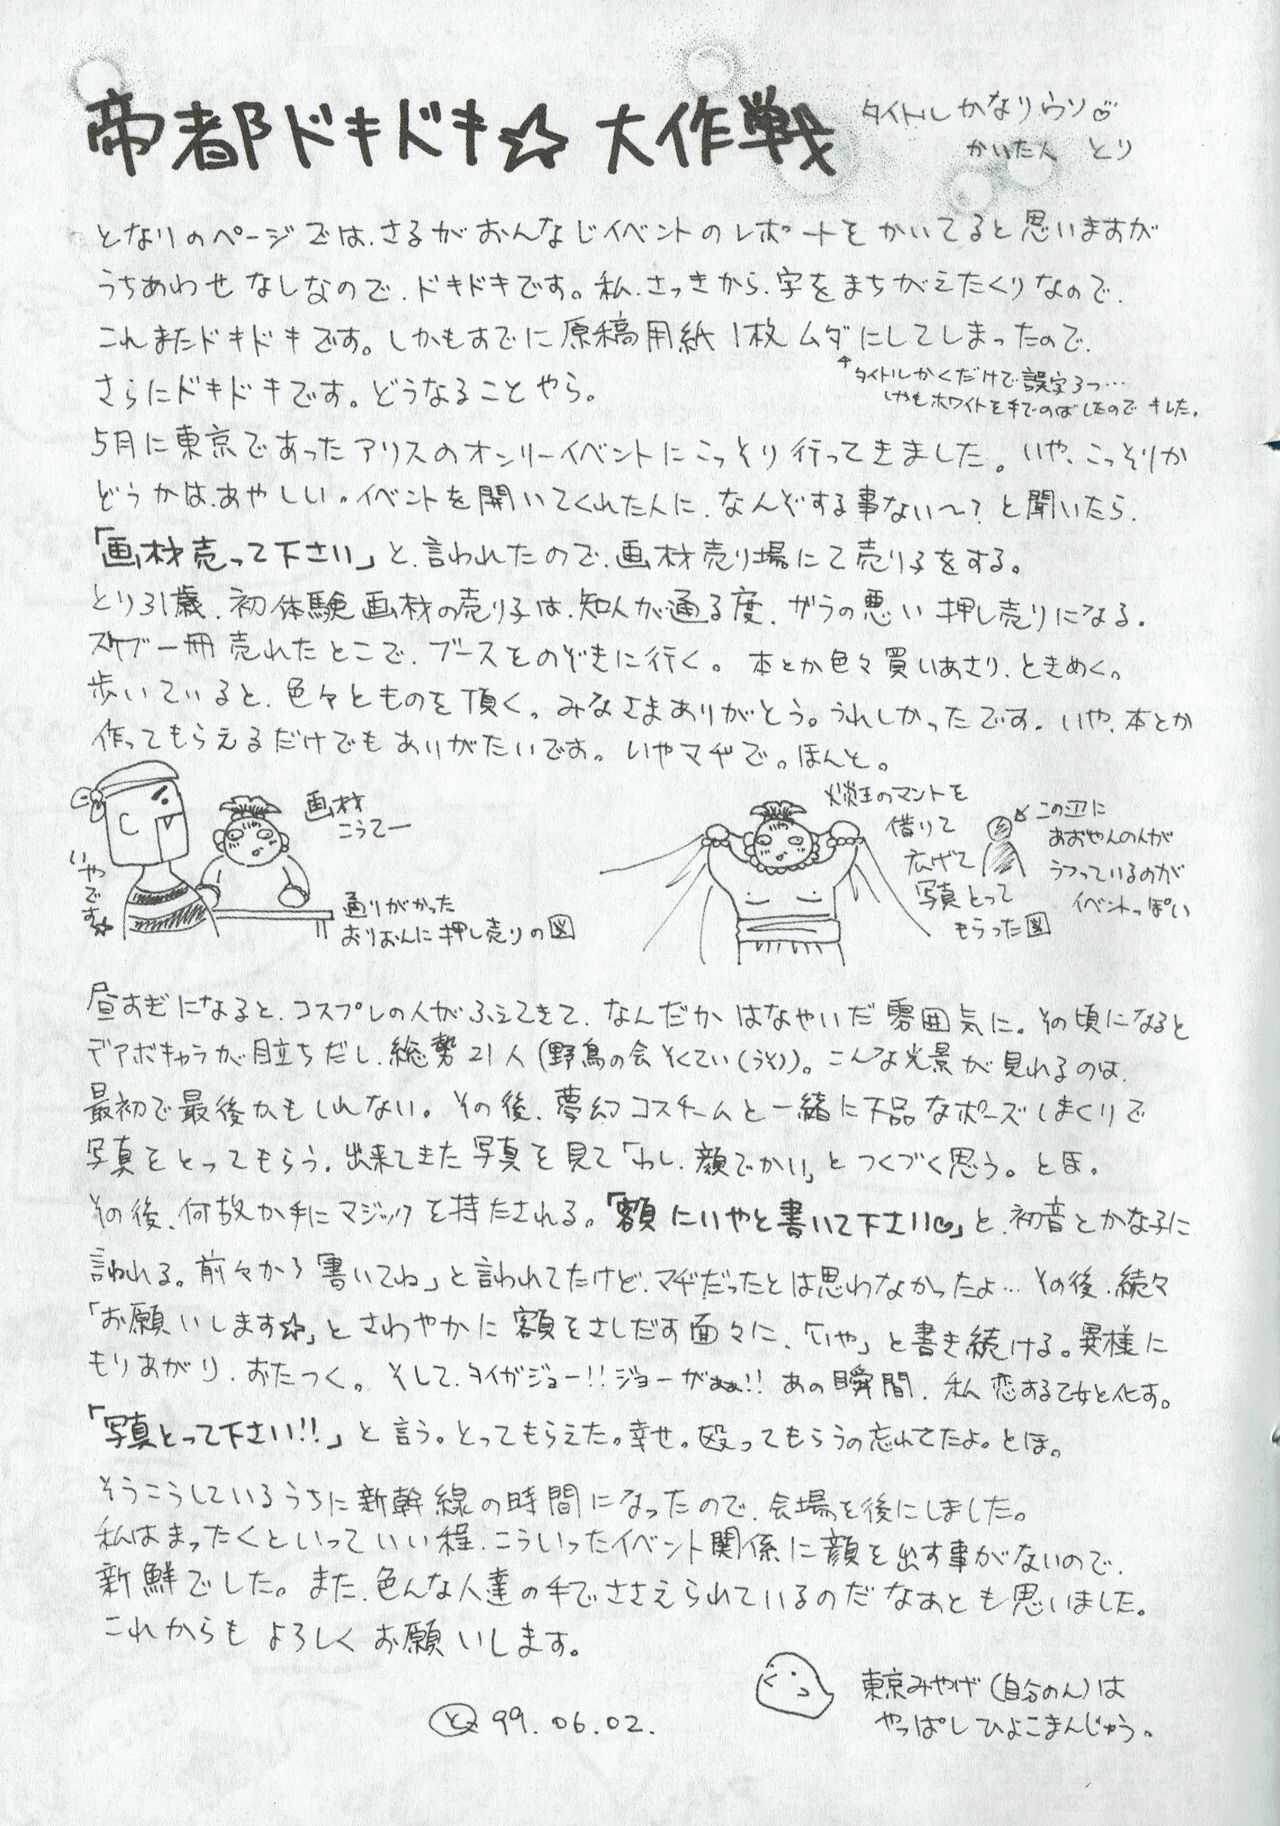 帝都ドキドキ☆大作戦
タイトルかなりウソ♡
かいた人 とり
となりのページでは、さるがおんなじイベントのレポートをかいてると思いますが
うちあわせなしなので、ドキドキです。私、さっきから、字をまちがえたくりなので、
これまたドキドキです。しかもすでに原稿用紙1枚ムダにしてしまったので、
↑タイトルかくだけで誤字3つ…
しかもホワイトを手でのばしたのでキレた。
さらにドキドキです。どうなることやら。
5月に東京であったアリスのオンリーイベントにこっそり行ってきました。いや、こっそりか
どうかは、あやしい。イベントを開いてくれた人に、なんぞする事ない〜?と聞いたら、
「画材売って下さい」と、言われたので、画材売り場にて売り子をする。
とり31歳、初体験画材の売り子は、知人が通る度、ガラの悪い押し売りになる。
スケブ一冊売れたとこで、ブースをのぞきに行く。本とか色々買いあさり、ときめく。
歩いていると、色々とものを頂く。みなさまありがとう。うれしかったです。いや、本とか
作ってもらえるだけでもありがたいです。いやマヂで。ほんと。
画材
こうてー
いやです☆
通りがかった
おりおんに押し売りの図
炎王のマントを
借りて
広げて
写真とって
もらった図
この辺に
あおやんの人が
うつっているのが
イベントっぽい
昼すぎになると、コスプレの人がふえてきて、なんだかはなやいだ雰囲気に。その頃になると
デアボキャラが目立ちだし、総勢21人(野鳥の会そくてい(うそ))。こんな光景が見れるのは、
最初で最後かもしれない。その後、夢幻コスチームと一緒に下品なポーズしまくりで
写真をとってもらう。出来てきた写真を見て「わし、顔でかい」とつくづく思う。とほ。
その後、何故か手にマジックを持たされる。「額にいやと書いて下さい♡」と、初音とかな子に
言われる。前々から「書いてね」と言われてたけど、マヂだったとは思わなかったよ…その後、続々
「お願いします☆」とさわやかに額をさしだす面々に、「いや」と書き続ける。異様に
もりあがり、おたつく。そして、タイガジョー!!ジョーがぁぁ!!あの瞬間、私恋する乙女と化す。
「写真とって下さい!!」と言う。とってもらえた。幸せ。殴ってもらうの忘れてたよ。とほ。
そうこうしているうちに新幹線の時間になったので、会場を後にしました。
私はまったくといっていい程、こういったイベント関係に顔を出す事がないので、
新鮮でした。また、色んな人達の手でささえられているのだなぁとも思いました。
これからもよろしくお願いします。
東京みやげ(自分のん)は
やっぱしひよこまんじゅう。
と 99.06.02.